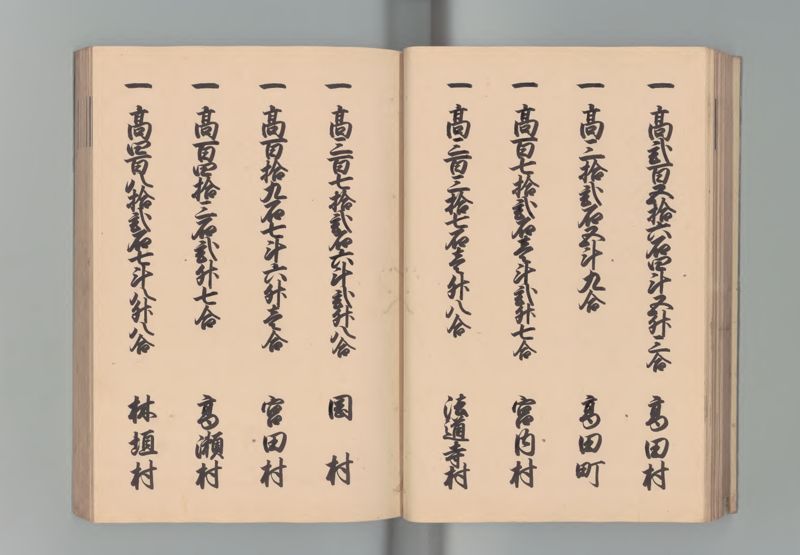 一 高弐百五拾六石四斗五升三合 高田村
一 高三拾弐石五斗九合 高田町
一 高百七拾弐石壱斗弐升七合 宮内村
一 高三百三拾七石壱升八合 法道寺村
一 高三百七拾弐石六斗弐升八合 岡村
一 高百拾九石七斗六升壱合 宮田村
一 高百四拾三石弐升七合 高瀬村
一 高四百八拾弐石七斗八升八合 林垣村